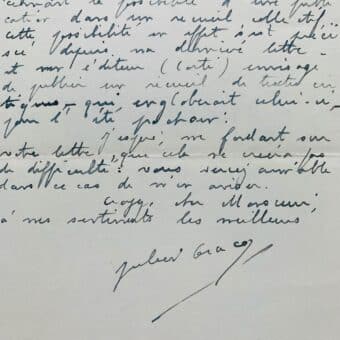 la possibilité d'une publi
cation dans un recueil collectif,
cette possibilité en effet s'est préci
sée depuis ma dernière lettre
et mon éditeur (Corti) envisage
de publier un recueil de textes cri
tiques - qui engloberait celui-ci,
pour l'été prochain.
J'espère, me fondant sur
votre lettre, que cela ne créera pas
de difficultés : vous seriez aimable
dans ce cas de m'en aviser.
Croyez, cher Monsieur,
à mes sentiments les meilleurs
Julien Gracq